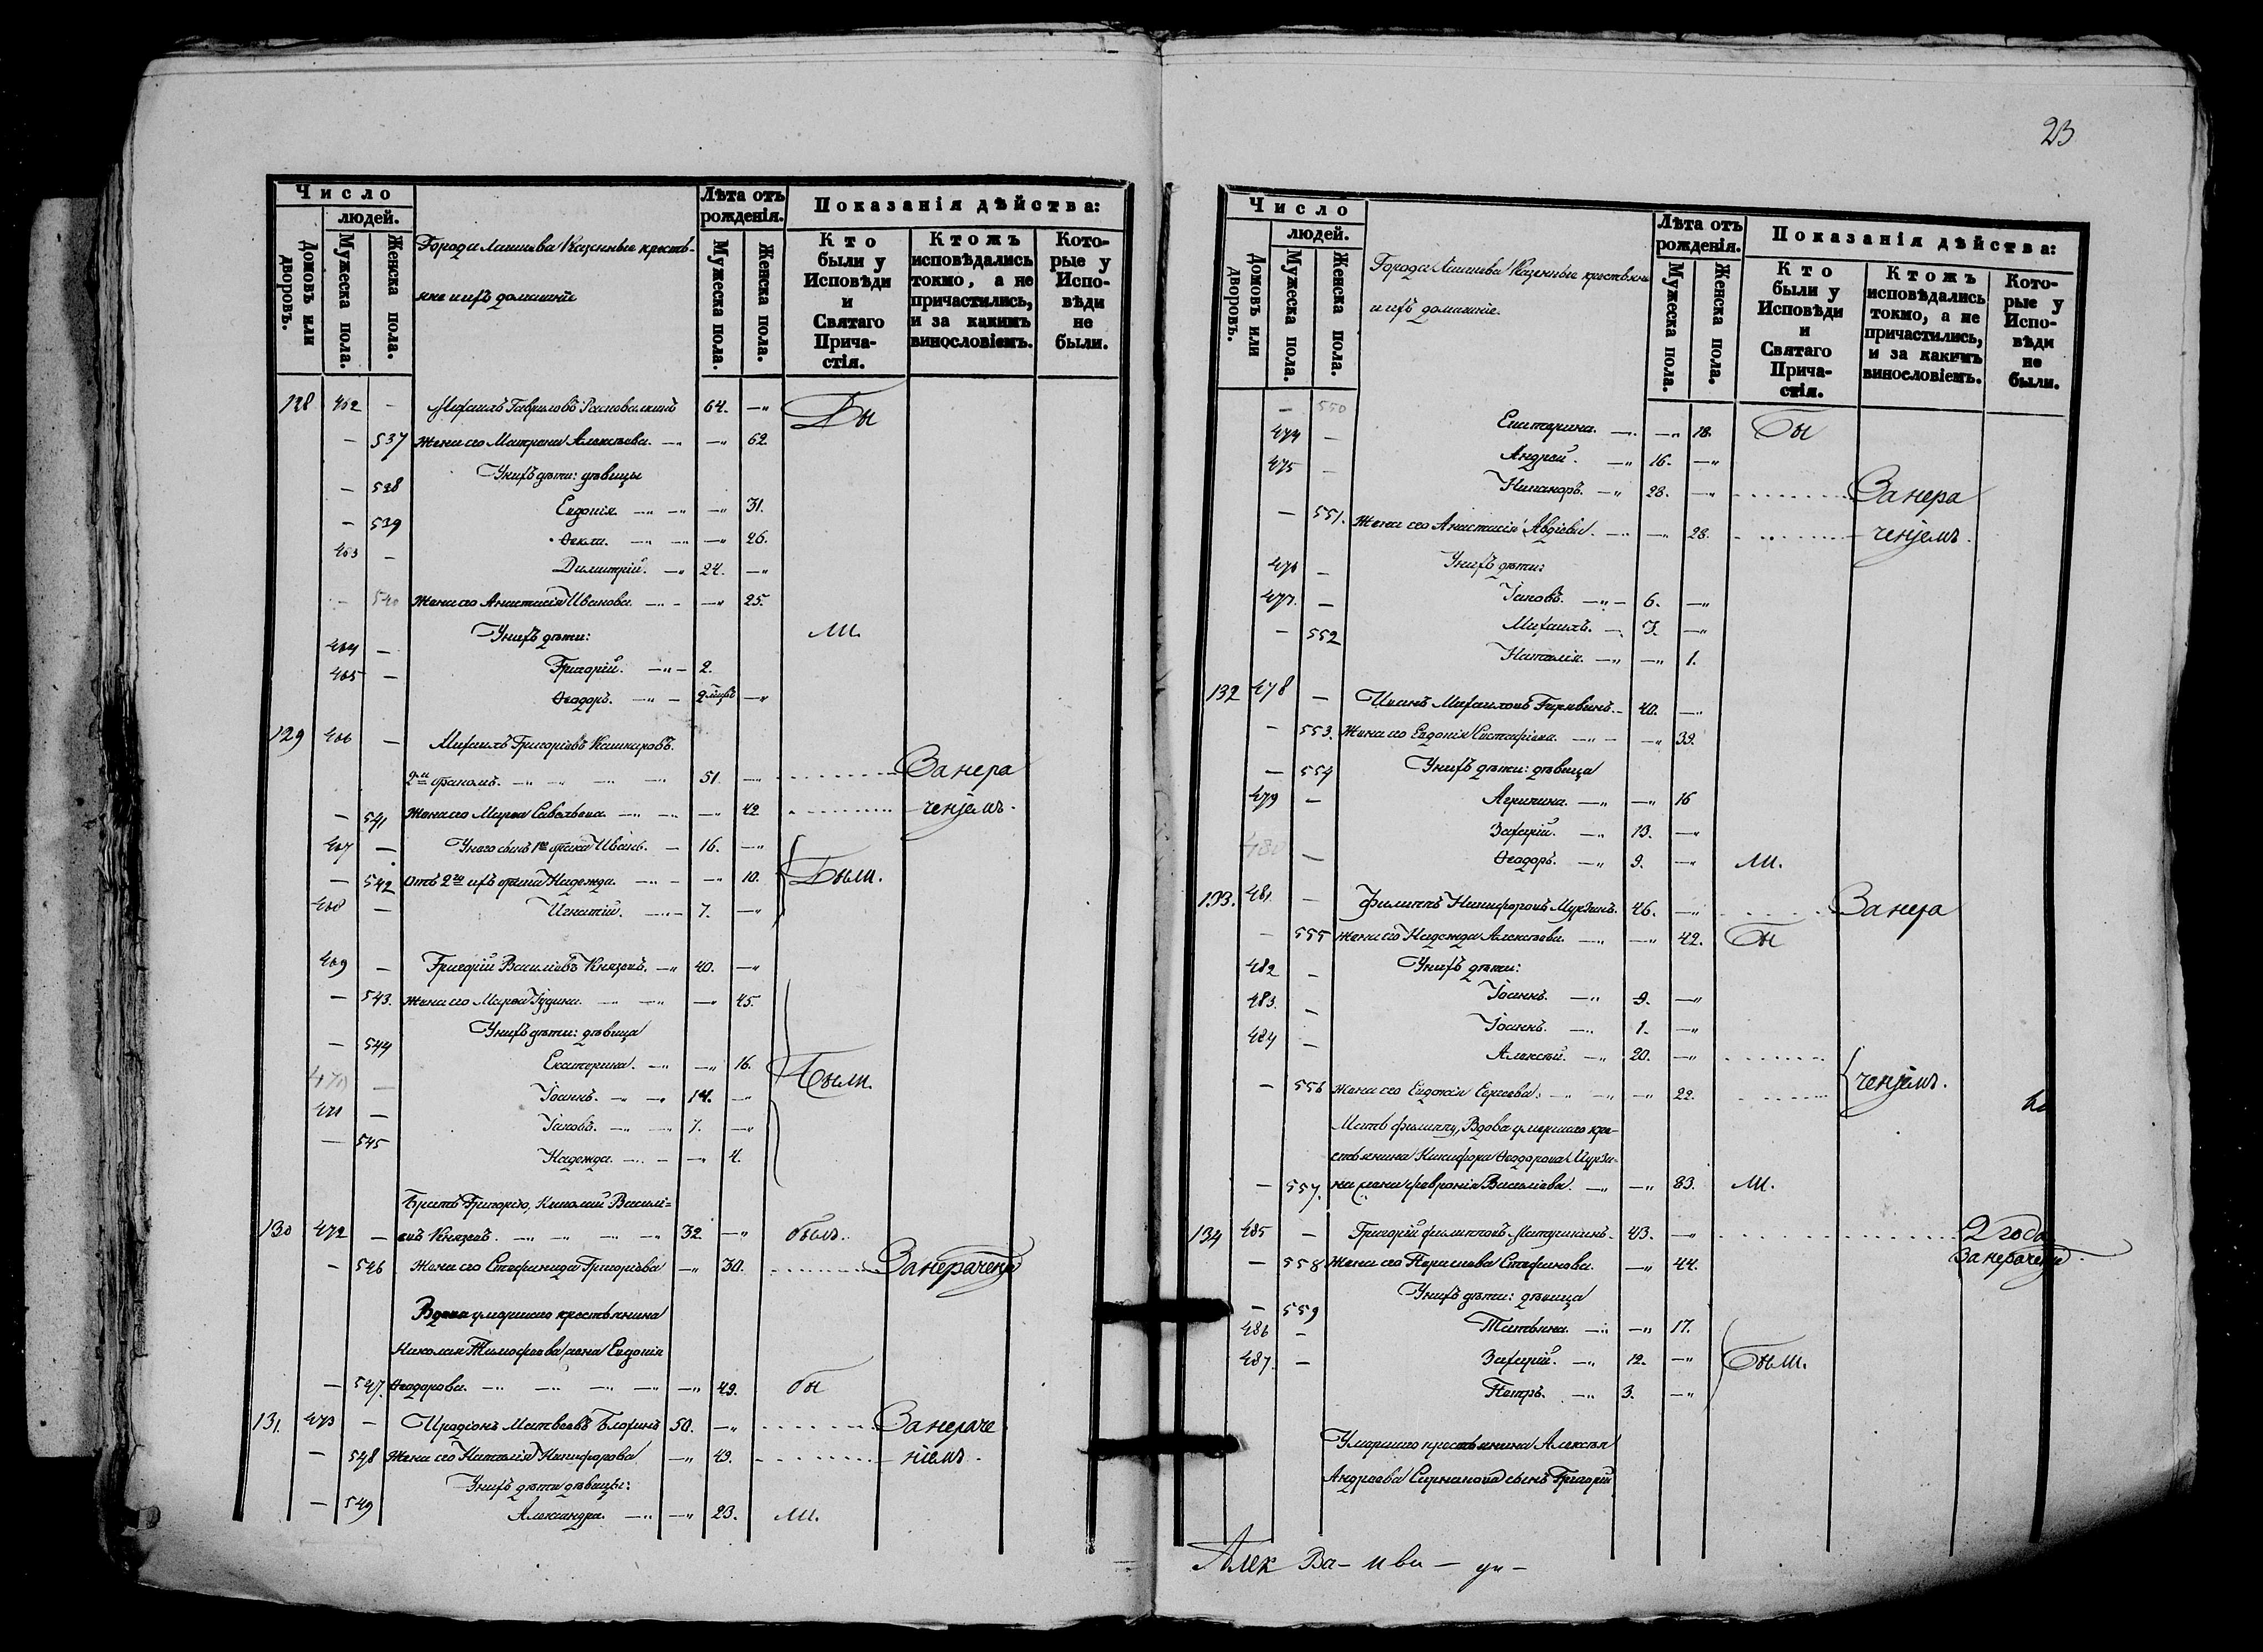 Число
людей.
Домовъ или дворовъ.
Мужеска пола.
Женска пола.
Города Лаишева Казенные кресть-
яне и ихъ домашніе
Лѣта отъ рожденія.
Мужеска пола.
Женска пола.
Показанія дѣйства:
Кто были у Исповѣди и Святаго Прича-стія.
Ктожъ исповѣдались токмо, а не причастились, и за какимъ винословіемъ.
Кото-рые у Испо-вѣди не были.
128 462 - Михаилъ Гавриловъ 64. -" Бы
- 537 Жена его Матрена Алексѣева. -" -" 62.
У нихъ дѣти: дѣвицы
- 538 Евдокія. -" -" -" 31.
- 539 Ѳекла. -" -" -" 26.
463 - Димитрій. -" 24. -"
- 540 Жена его Анастасія Иванова. -" -" 25.
У нихъ дѣти: ли.
464 - Григорій. -" - 2.
465 - Ѳеодоръ. -" - 2 мѣсяцъ -"
129 466 - Михаилъ Григоріевъ Кашкаровъ.
2мъ бракомъ. -" -" -" -" 51. -" Занера
- 541 Жена его Марѳа Савельева. -" -" -" 42 ченіемъ.
467 - У него сынъ 1го брака Иванъ. - 16. -"
- 542 Отъ 2го ихъ брака Надежда. -" - -" 10. Были.
468 - Игнатій. -" - 7. -"
469 - Григорій Василіевъ Князевъ. -" 40. -"
- 543. Жена его Марѳа Іудина. -" -" -" 45.
У нихъ дѣти: дѣвица
- 544 Екатерина. -" -" 16.
470 - Іоаннъ. -" -" 14. -" Были.
471 - Іаковъ. -" -" 7. -"
- 545 Надежда. -" - -" 4.
Братъ Григорію, Николай Василі=
130 472 - евъ Князевъ. -" -" -" -" 32 -" былъ.
- 546 Жена его Стефанида Григоріева -" 30. Занераченіе
Вдова умершаго крестьянина
Николая Тимофеева жена Евдокія
- 547. Ѳеодорова. -" -" -" -" -" 49. бы
131. 473 - Иродіонъ Матвеевъ Блохинъ 50. -" Занераче
- 548 Жена его Наталія Никифорова -" 49. ніемъ.
У нихъ дѣти дѣвицы:
- 549 Александра. -" -" 23. ли.
23
Число
людей.
Домовъ или дворовъ.
Мужеска пола.
Женска пола.
Города Лаишева Казенные крестьяне
и ихъ домашніе.
Лѣта отъ рожденія.
Мужеска пола.
Женска пола.
Показанія дѣйства:
Кто были у Исповѣди и Святаго Прича-стія.
Ктожъ исповѣдались токмо, а не причастились, и за какимъ винословіемъ.
Кото-рые у Испо-вѣди не были.
- 550 Екатерина. -" -" 18. Бы
474 - Андрей. -" 16. -"
475 - Никаноръ. -" 28. -" Занера
- 551. Жена его Анастасія Авдіева. -" -" 28. ченіемъ.
У нихъ дѣти:
476 - Іаковъ. -" - 6. -"
477. - Михаилъ. -" 3. -"
- 552 Наталія. -" -" 1.
132 478 - Иванъ Михаиловъ 40. -"
- 553. Жена его Евдокія Евстафіева. -" - -" 39.
У нихъ дѣти: дѣвица
- 554 Агрипина. -" -" 16
479 - Захарій. -" 13. -"
480 - Ѳеодоръ. -" 9. -" ли.
133. 481. - Филиппъ Никифоровъ Мурзинъ. 46. -" Занера
- 555 Жена его Надежда Алексѣева. -" -" 42. Бы
У нихъ дѣти:
482 - Іоаннъ. -" 9. -"
483. - Іоаннъ. -" 1. -"
484 - Алексѣй. -" 20. -"
- 556 Жена его Евдокія Сергеева. -" -" -" 22. ченіемъ.
Мать Филиппу, Вдова умершаго кре-
стьянина Никифора Ѳеодорова Мурзи-
- 557. на жена Февронія Василіева. -" -" 83. ли.
134 485 - Григорій Филипповъ 43. -" 2 года
- 558 Жена его Параскева Стефанова. -" 44. Занераченіе
У нихъ дѣти: дѣвица
- 559 Татьяна. -" -" 17.
486 - Захарій. -" 12. -" Были.
487. - Петръ. -" 3. -"
Умершаго крестьянина Алексѣя
Андреева сынъ Григорій
Алек Ва- ива -